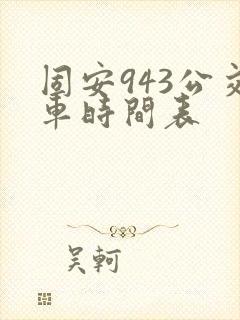 固安943公交
車時間表
吴軻